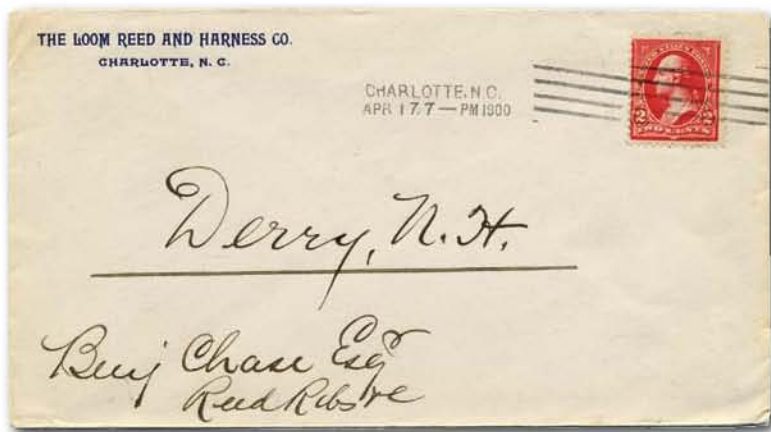 THE LOOM REED AND HARNESS CO.
CHARLOTTE, N. C.
CHARLOTTE, N.C.
APR 17 7 — PM 1900
2 2
TWO CENTS
Derry, N. H.
Benj Chase Esqr
Reed Ribs